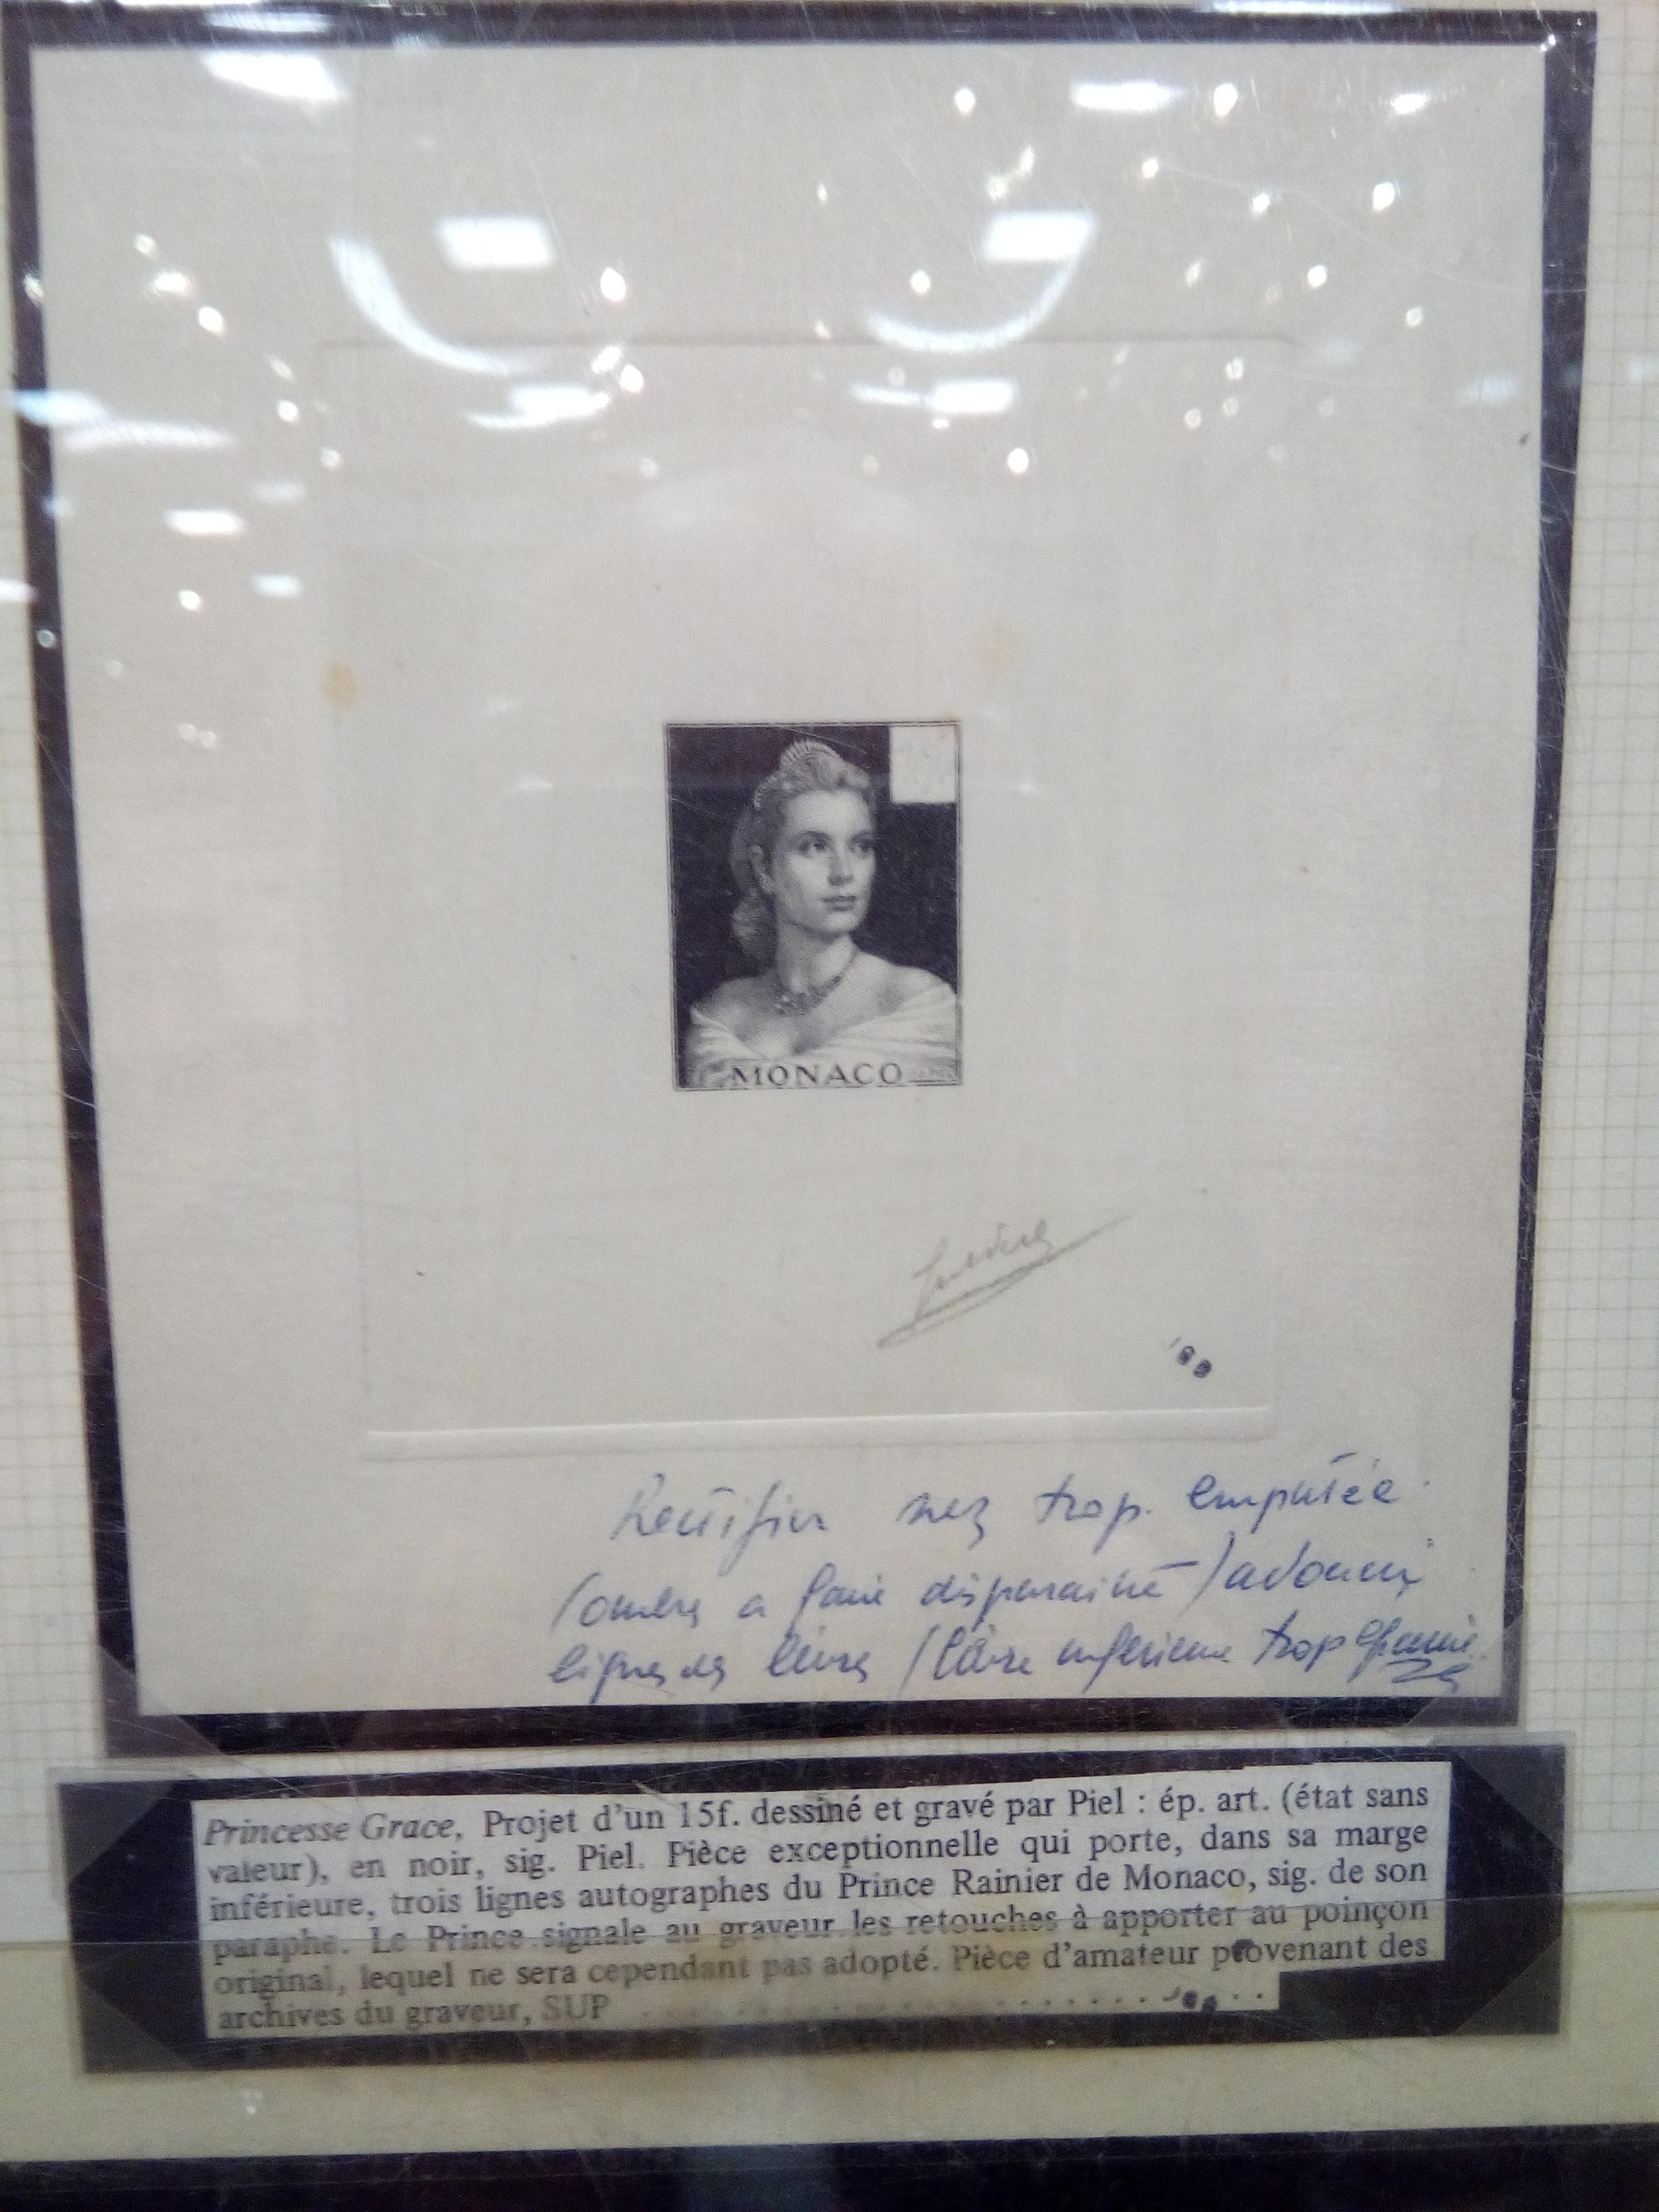 MONACO
Rectifier nez trop empatée
(ombre a faire disparaitre) adoucir
lignes des lèvres (lèvre inférieure trop
Princesse Grace, Projet d'un 15f. dessiné et gravé par Piel : ép. art. (état sans
valeur), en noir, sig. Piel. Pièce exceptionnelle qui porte, dans sa marge
inférieure, trois lignes autographes du Prince Rainier de Monaco, sig. de son
paraphe. Le Prince signale au graveur les retouches à apporter au poinçon
original, lequel ne sera cependant pas adopté. Pièce d'amateur provenant des
archives du graveur, SUP